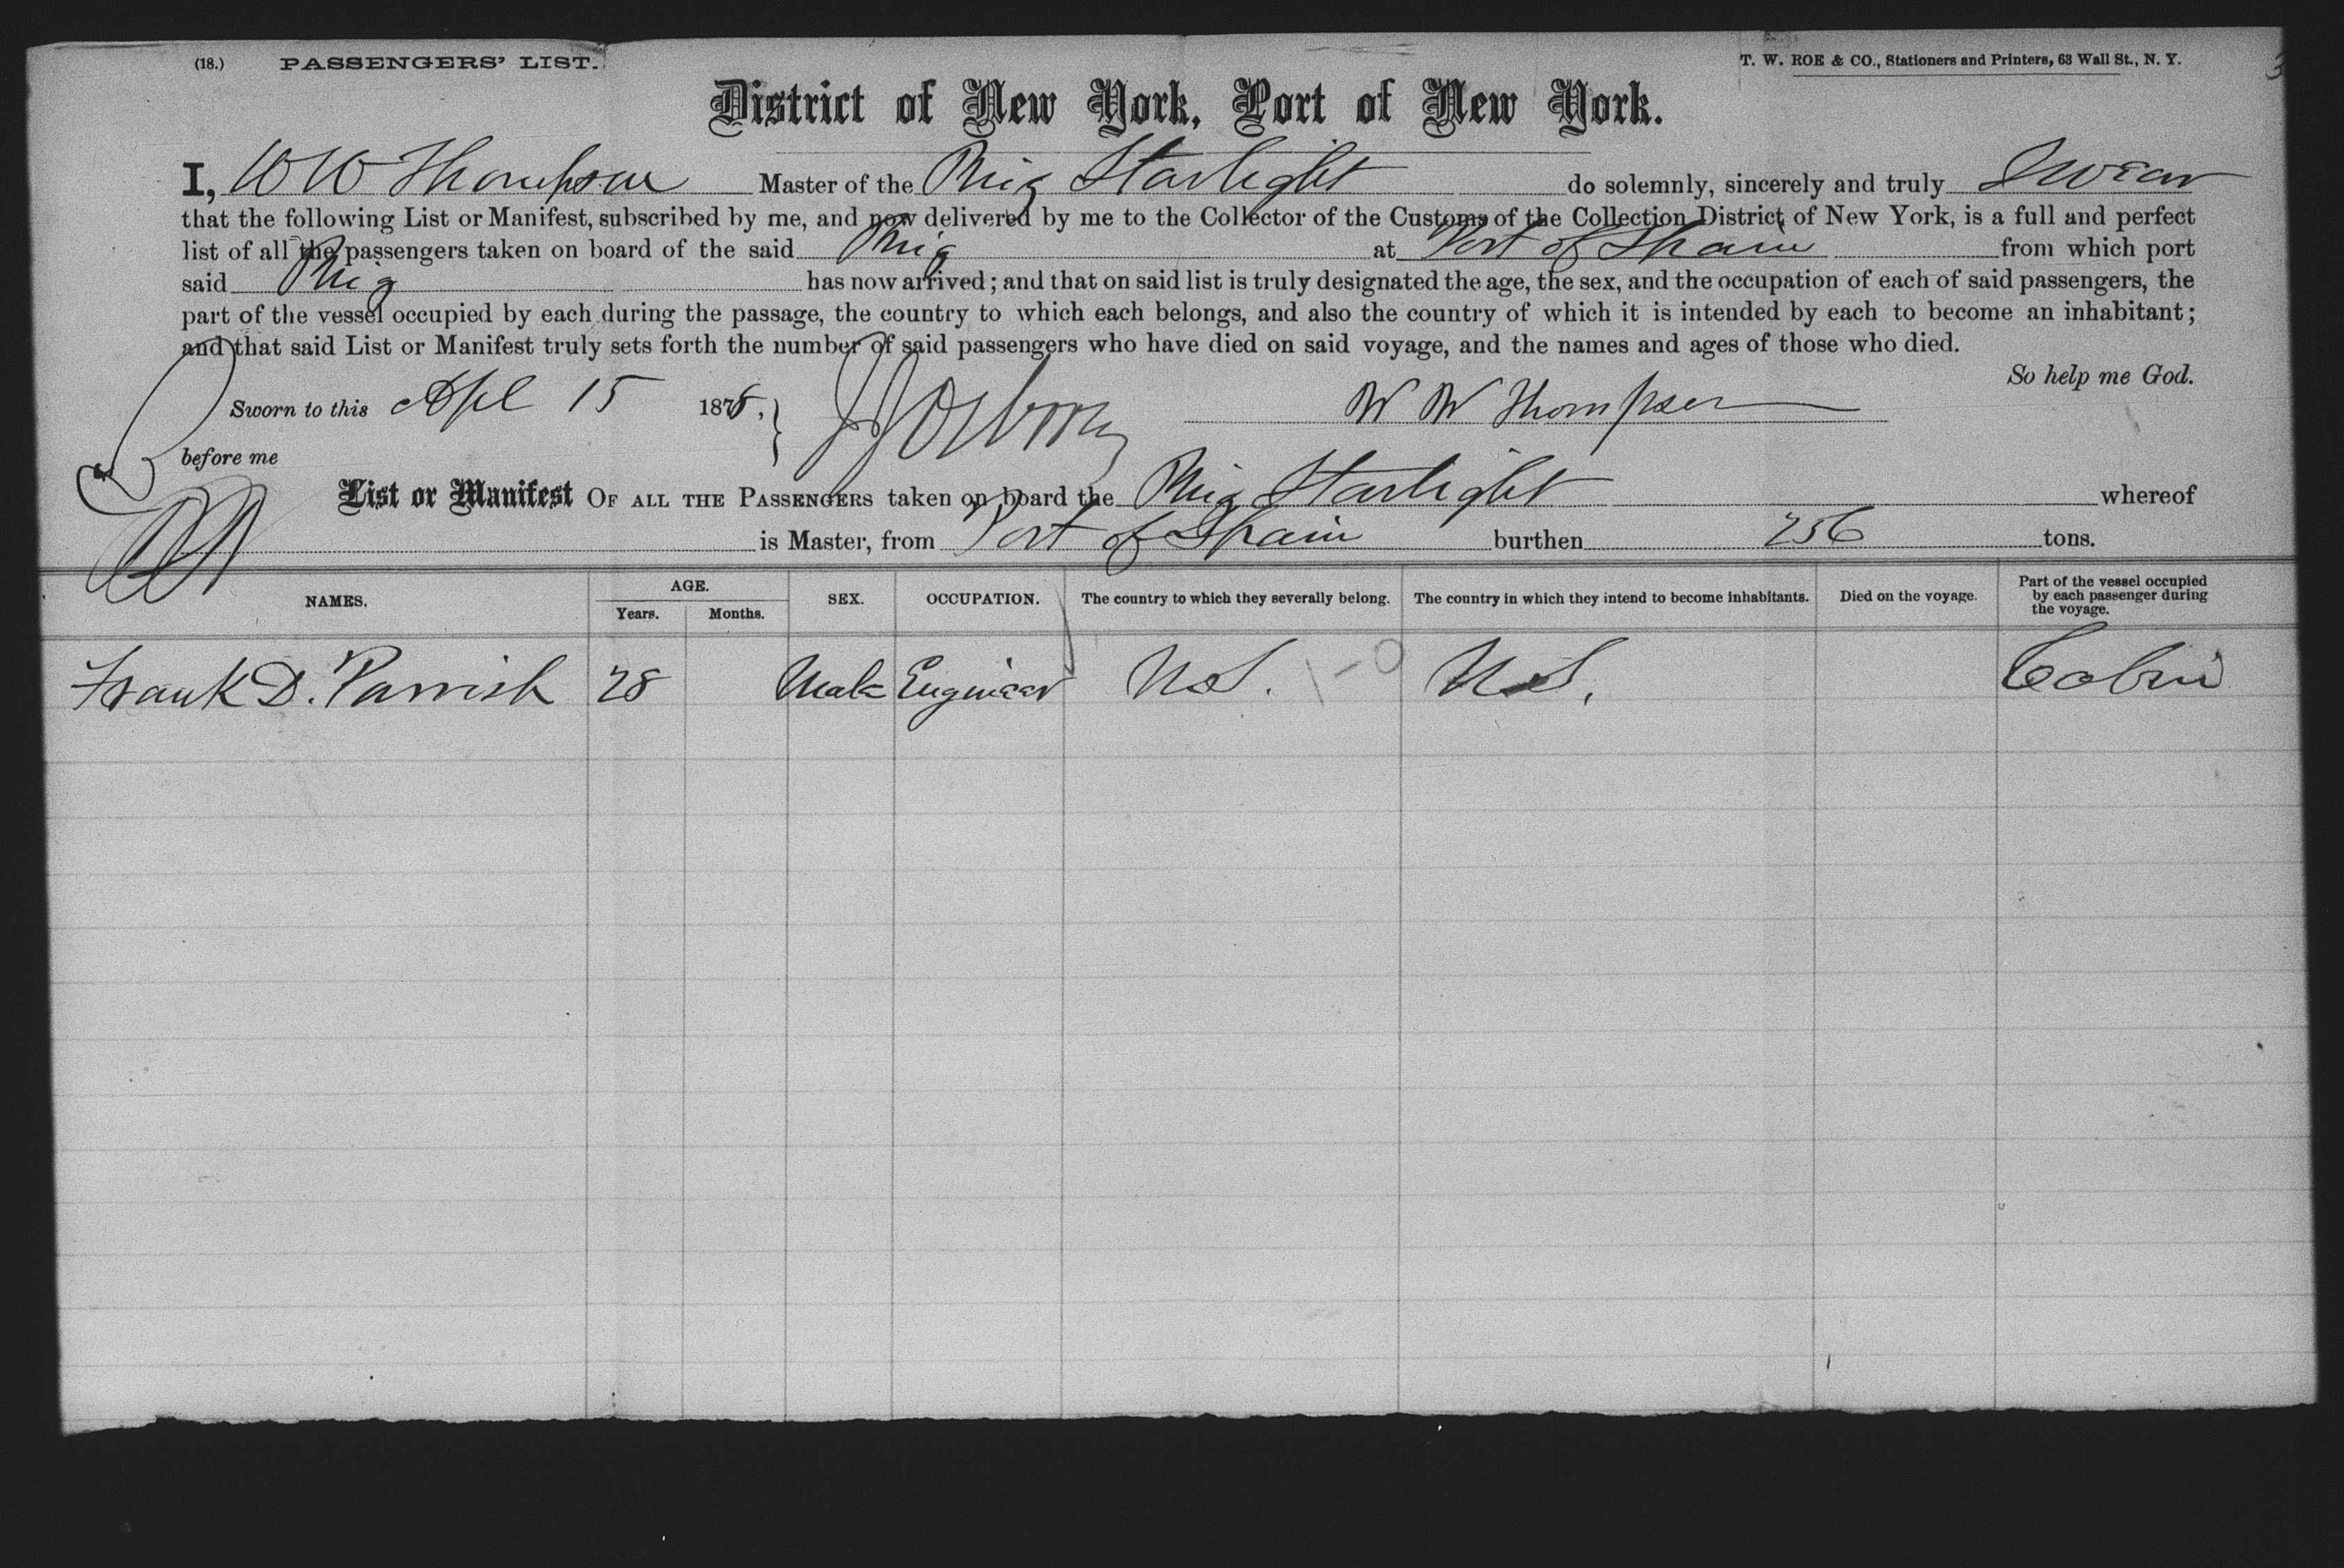 (18.) PASSENGERS' LIST. T. W. ROE & CO., Stationers and Printers, 63 Wall St., N. Y.
District of New York, Port of New York.
I, W W Thompson Master of the Brig Starlight do solemnly, sincerely and truly Swear
that the following List or Manifest, subscribed by me, and now delivered by me to the Collector of the Customs of the Collection District of New York, is a full and perfect
list of all the passengers taken on board of the said Brig at Port of Spain from which port
said Brig has now arrived; and that on said list is truly designated the age, the sex, and the occupation of each of said passengers, the
part of the vessel occupied by each during the passage, the country to which each belongs, and also the country of which it is intended by each to become an inhabitant;
and that said List or Manifest truly sets forth the number of said passengers who have died on said voyage, and the names and ages of those who died.
So help me God.
Sworn to this Apl 15 187 W W Thompson
before me
List or Manifest OF ALL THE PASSENGERS taken on board the Brig Starlight whereof
is Master, from Port of Spain burthen 256 tons.
NAMES. AGE. Years. Months. SEX. OCCUPATION. The country to which they severally belong. The country in which they intend to become inhabitants. Died on the voyage. Part of the vessel occupied by each passenger during the voyage.
Frank D. Parrish 28 Male Engineer U.S. 1-0 U.S. Cabin